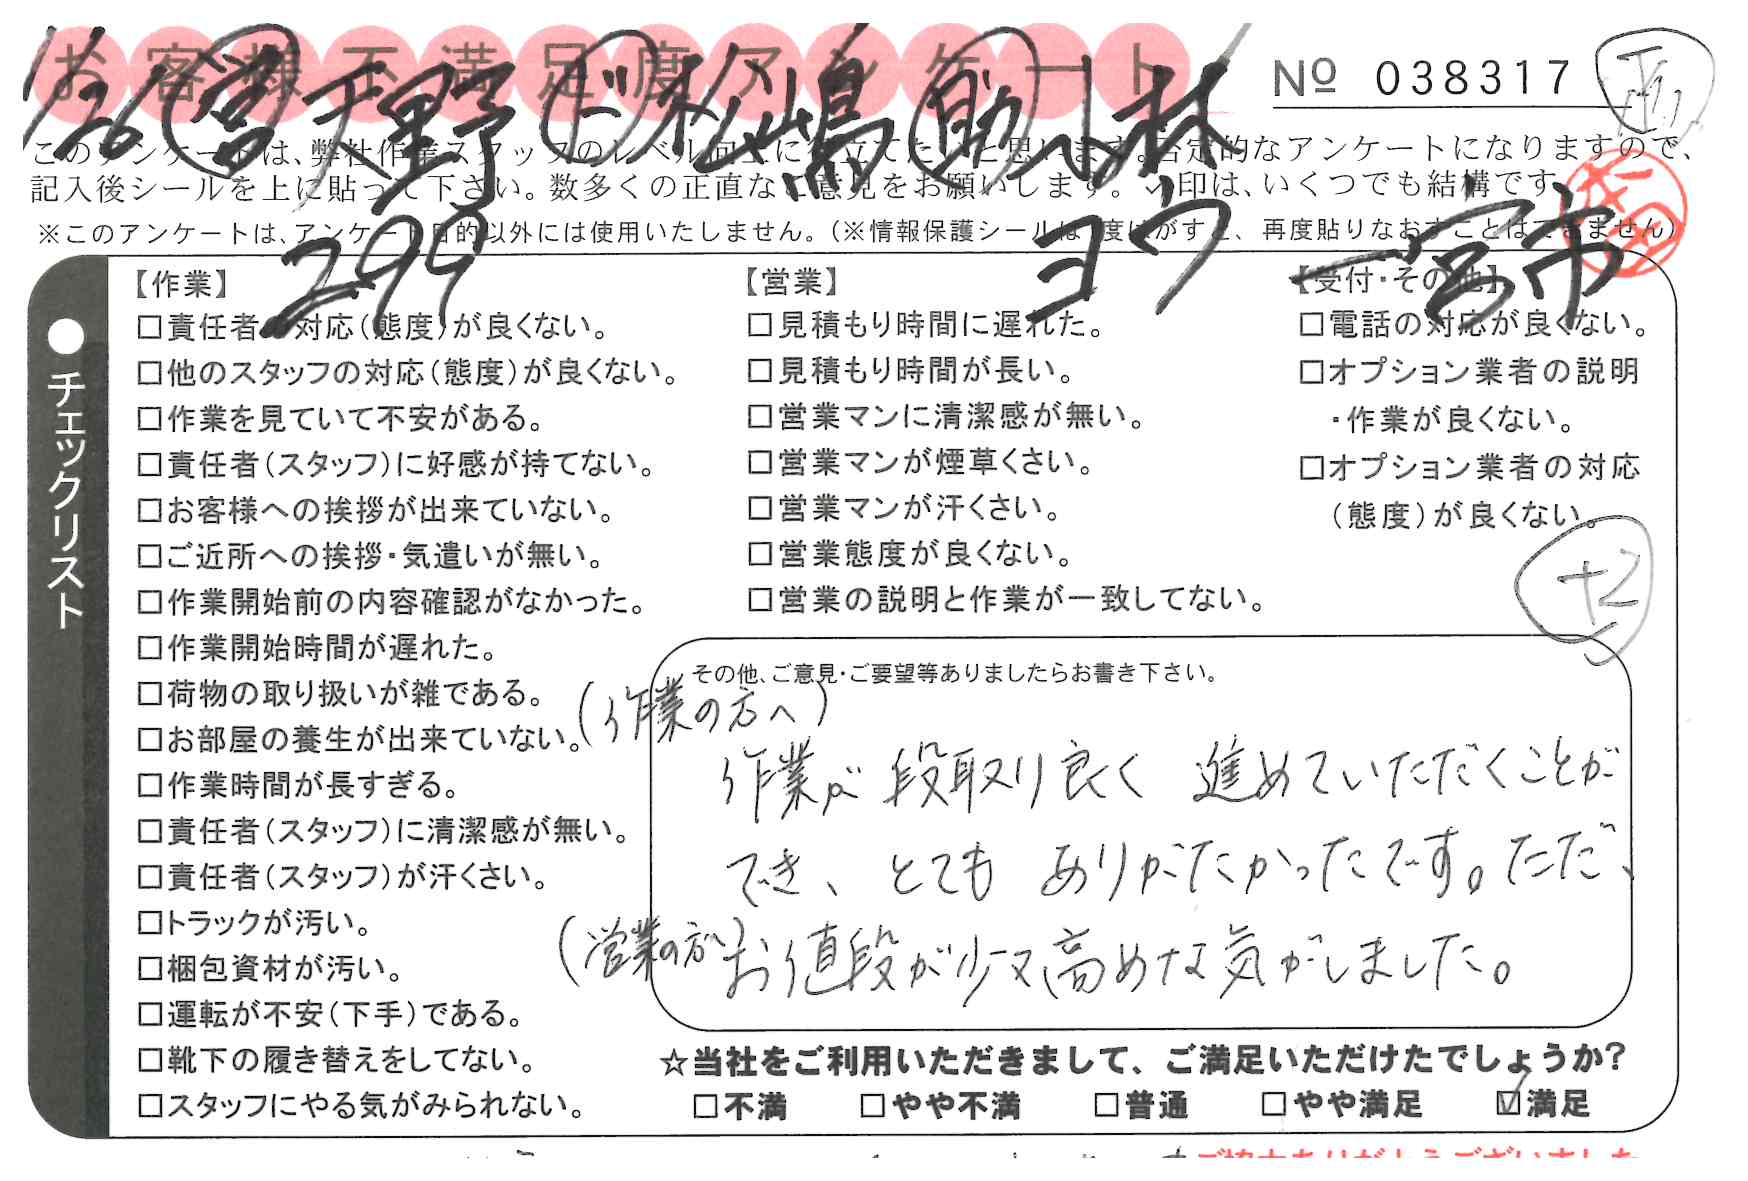 お客様不満足度アンケート
№ 038317
1/26 営 天野 ド 松嶋 助 小林
このアンケートは、弊社作業スタッフのレベル向上に役立てたいと思います。否定的なアンケートになりますので、
記入後シールを上に貼って下さい。数多くの正直なご意見をお願いします。✓印は、いくつでも結構です
※このアンケートは、アンケート目的以外には使用いたしません。(※情報保護シールは1度はがすと、再度貼りなおすことはできません)
299 ヨウ 一宮市
●チェックリスト
【作業】
□責任者の対応(態度)が良くない。
□他のスタッフの対応(態度)が良くない。
□作業を見ていて不安がある。
□責任者(スタッフ)に好感が持てない。
□お客様への挨拶が出来ていない。
□ご近所への挨拶・気遣いが無い。
□作業開始前の内容確認がなかった。
□作業開始時間が遅れた。
□荷物の取り扱いが雑である。
□お部屋の養生が出来ていない。
□作業時間が長すぎる。
□責任者(スタッフ)に清潔感が無い。
□責任者(スタッフ)が汗くさい。
□トラックが汚い。
□梱包資材が汚い。
□運転が不安(下手)である。
□靴下の履き替えをしてない。
□スタッフにやる気がみられない。
【営業】
□見積もり時間に遅れた。
□見積もり時間が長い。
□営業マンに清潔感が無い。
□営業マンが煙草くさい。
□営業マンが汗くさい。
□営業態度が良くない。
□営業の説明と作業が一致してない。
【受付・その他】
□電話の対応が良くない。
□オプション業者の説明
・作業が良くない。
□オプション業者の対応
(態度)が良くない。
+2
その他、ご意見・ご要望等ありましたらお書き下さい。
(作業の方へ)
作業が段取り良く 進めていただくことが
でき、とても ありがたかったです。ただ、
(営業の方へ)お値段が少々、高めな気がしました。
☆当社をご利用いただきまして、ご満足いただけたでしょうか?
□不満 □やや不満 □普通 □やや満足 ☑満足
ご協力ありがとうございました